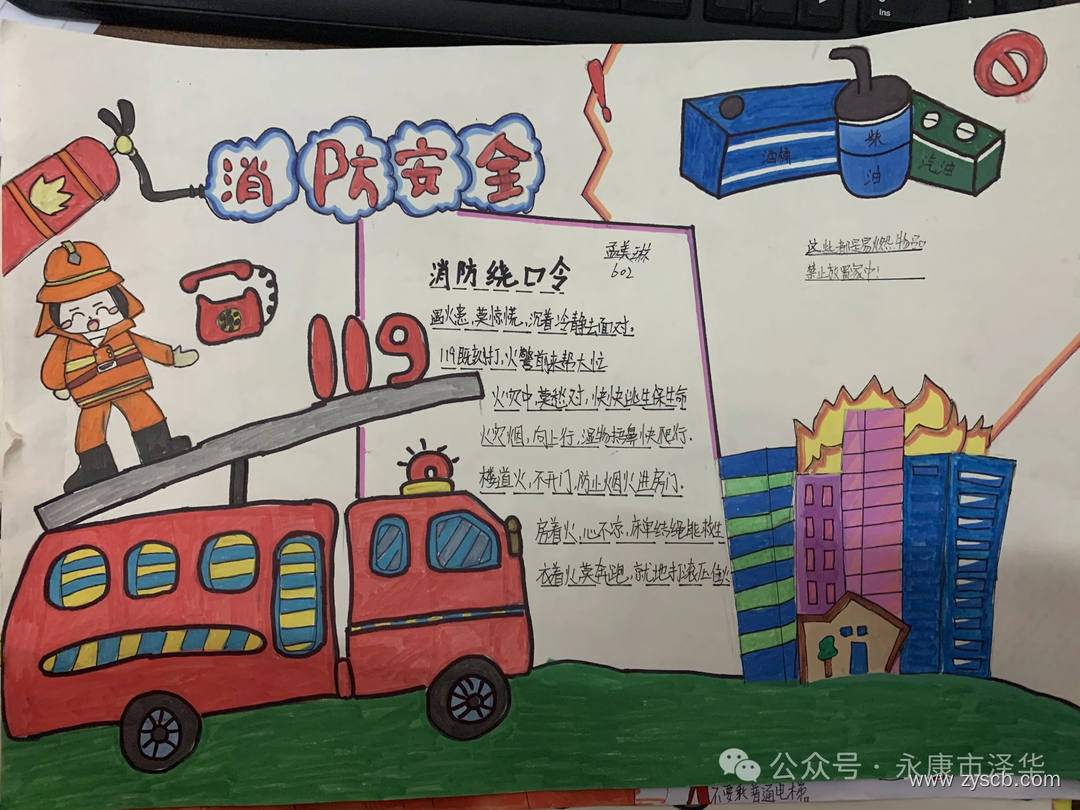 消防安全
油桶
柴油
汽油
这些都是易燃物品
禁止放置家中!
孟美琳
602
消防绕口令
遇火患,莫惊慌,沉着冷静去面对.
119既刻打,火警前来帮大忙
119
火灾中,莫愁对,快快逃生保生命
火灾烟,向上行,湿物捂鼻快爬行.
楼道火,不开门,防止烟火进房门.
房着火,心不凉,床单结绳能救生
衣着火莫奔跑,就地打滚压住火
Ins
公众号·永康市泽华
www.zyscb.com
不要乘普通电梯